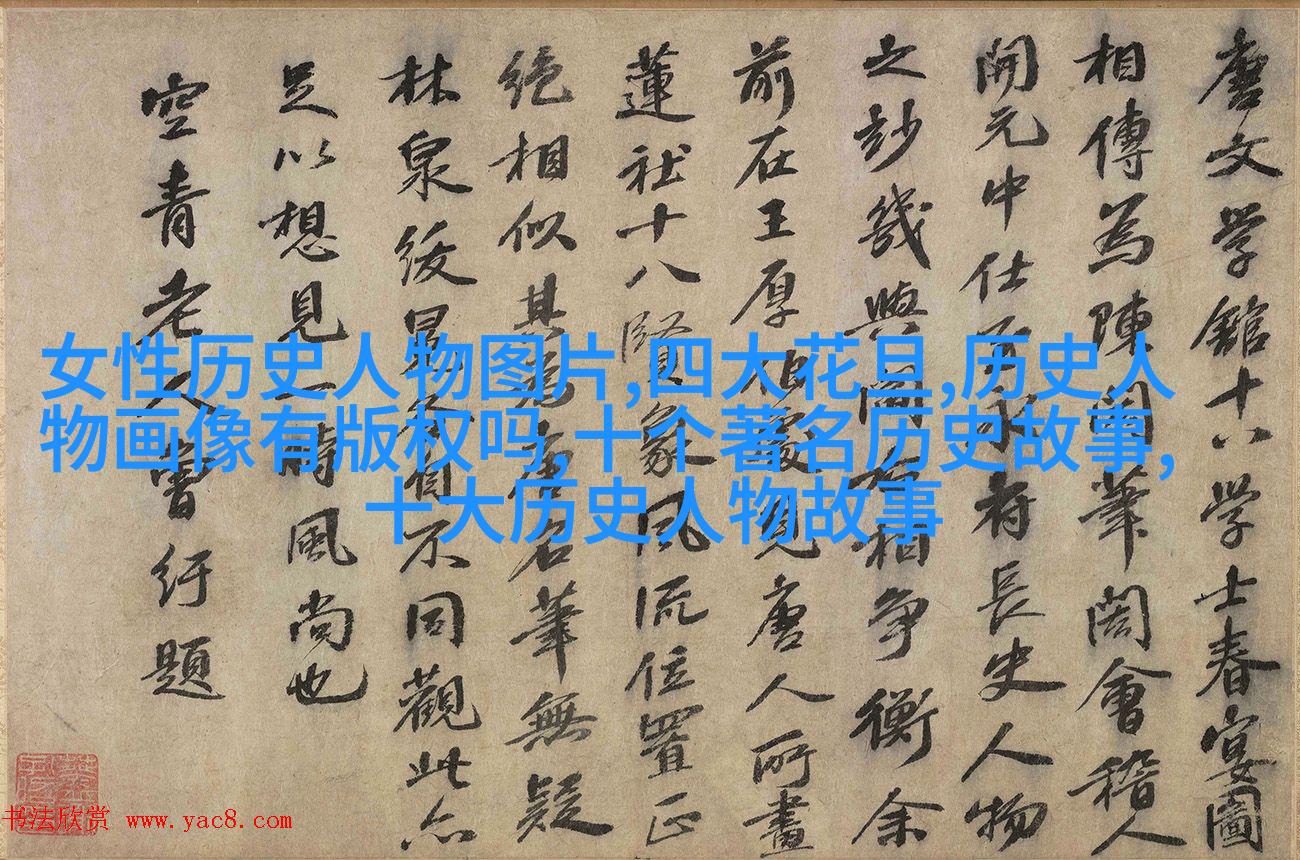 唐文学館十八学士春宴圖
相傳為陳閎筆閎會稽人
開元中仕至永府長史人物
之妙幾與閻相争衡余
前在王厚伯處見唐人所畫
蓮社十八賢象風流位置正
絶相似其為唐名筆無疑
林泉綬冕本自不同觀此亦
足以想見一時風尚也
空青老人曾紆題
女性历史人物图片,四大花旦,历史人
物画像有版权吗,十个著名历史故事,
十大历史人物故事
书法欣赏 www.yac8.com